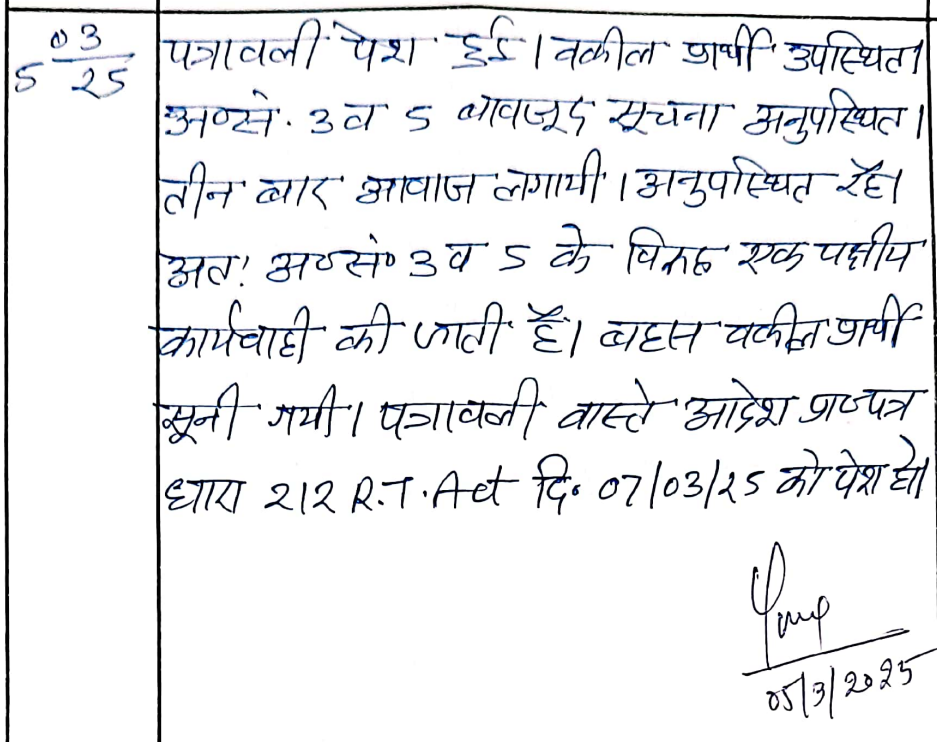 5 03/25
पत्रावली पेश हुई। वकील प्रार्थी उपस्थित।
अ०सं. 3 व 5 बावजूद सूचना अनुपस्थित।
तीन बार आवाज लगायी। अनुपस्थित रहे।
अतः अ०सं० 3 व 5 के विरुद्ध एक पक्षीय
कार्यवाही की जाती है। बहस वकील प्रार्थी
सूनी गयी। पत्रावली वास्ते आदेश प्रा०पत्र
धारा 212 R.T. Act दि० 07/03/25 को पेश हो।
05/3/2025